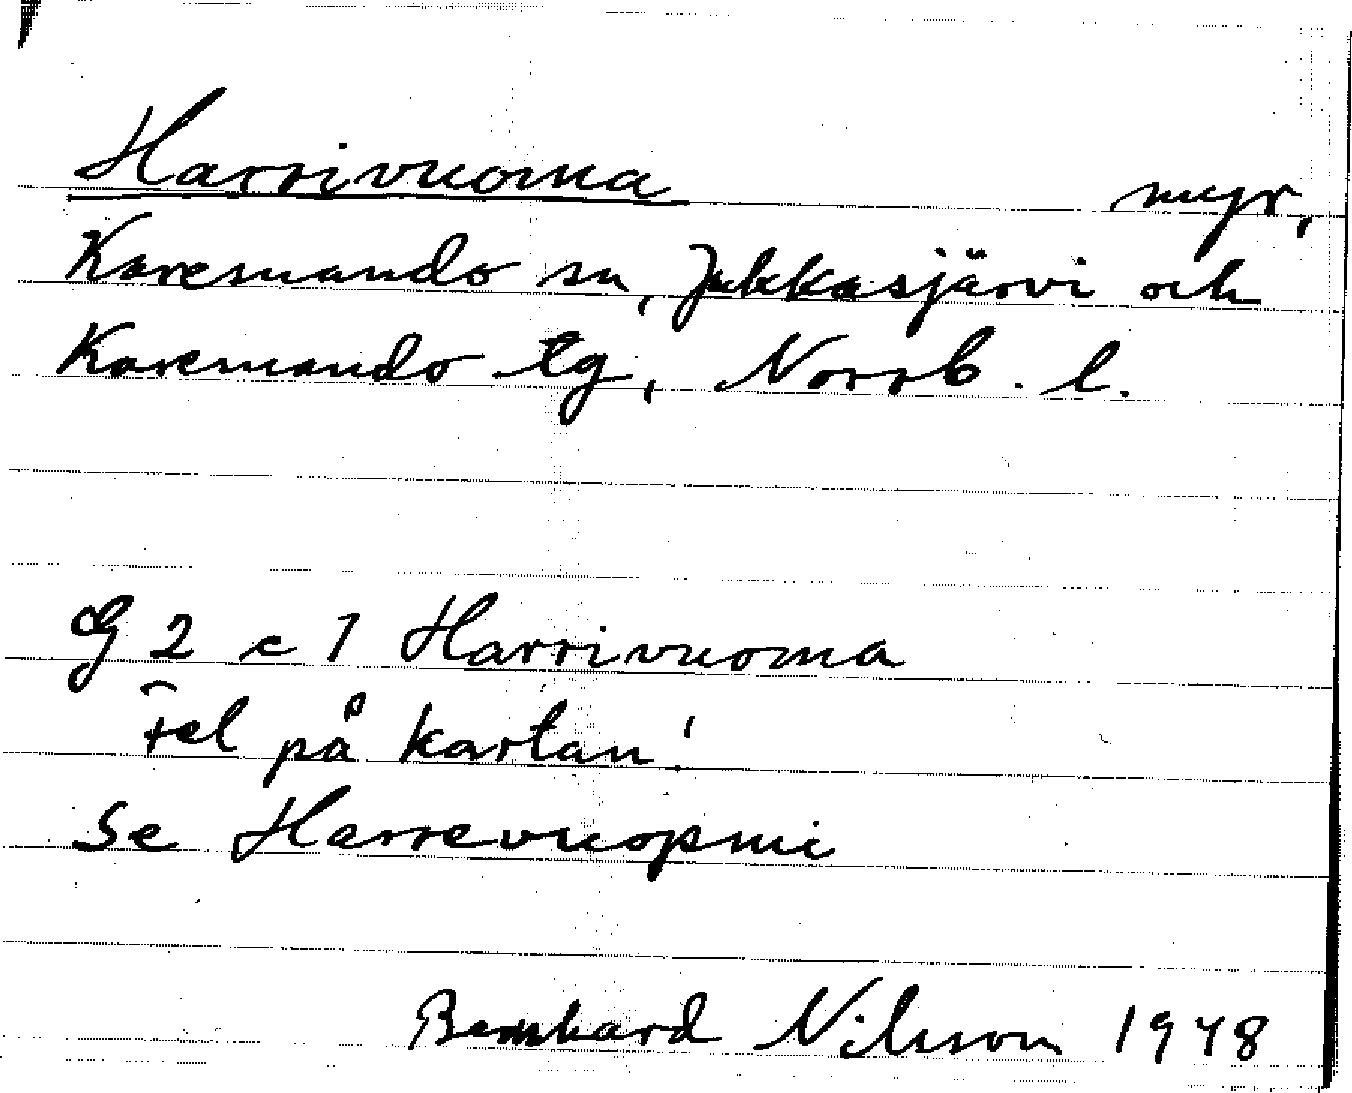 Harrivuoma myr,
Karesuando sn, Jukkasjärvi och
Karesuando tg, Norrb. l.
G 2 c 1 Harrivuoma
Fel på kartan!
Se Harrevuopmi
Bernhard Nilsson 1948